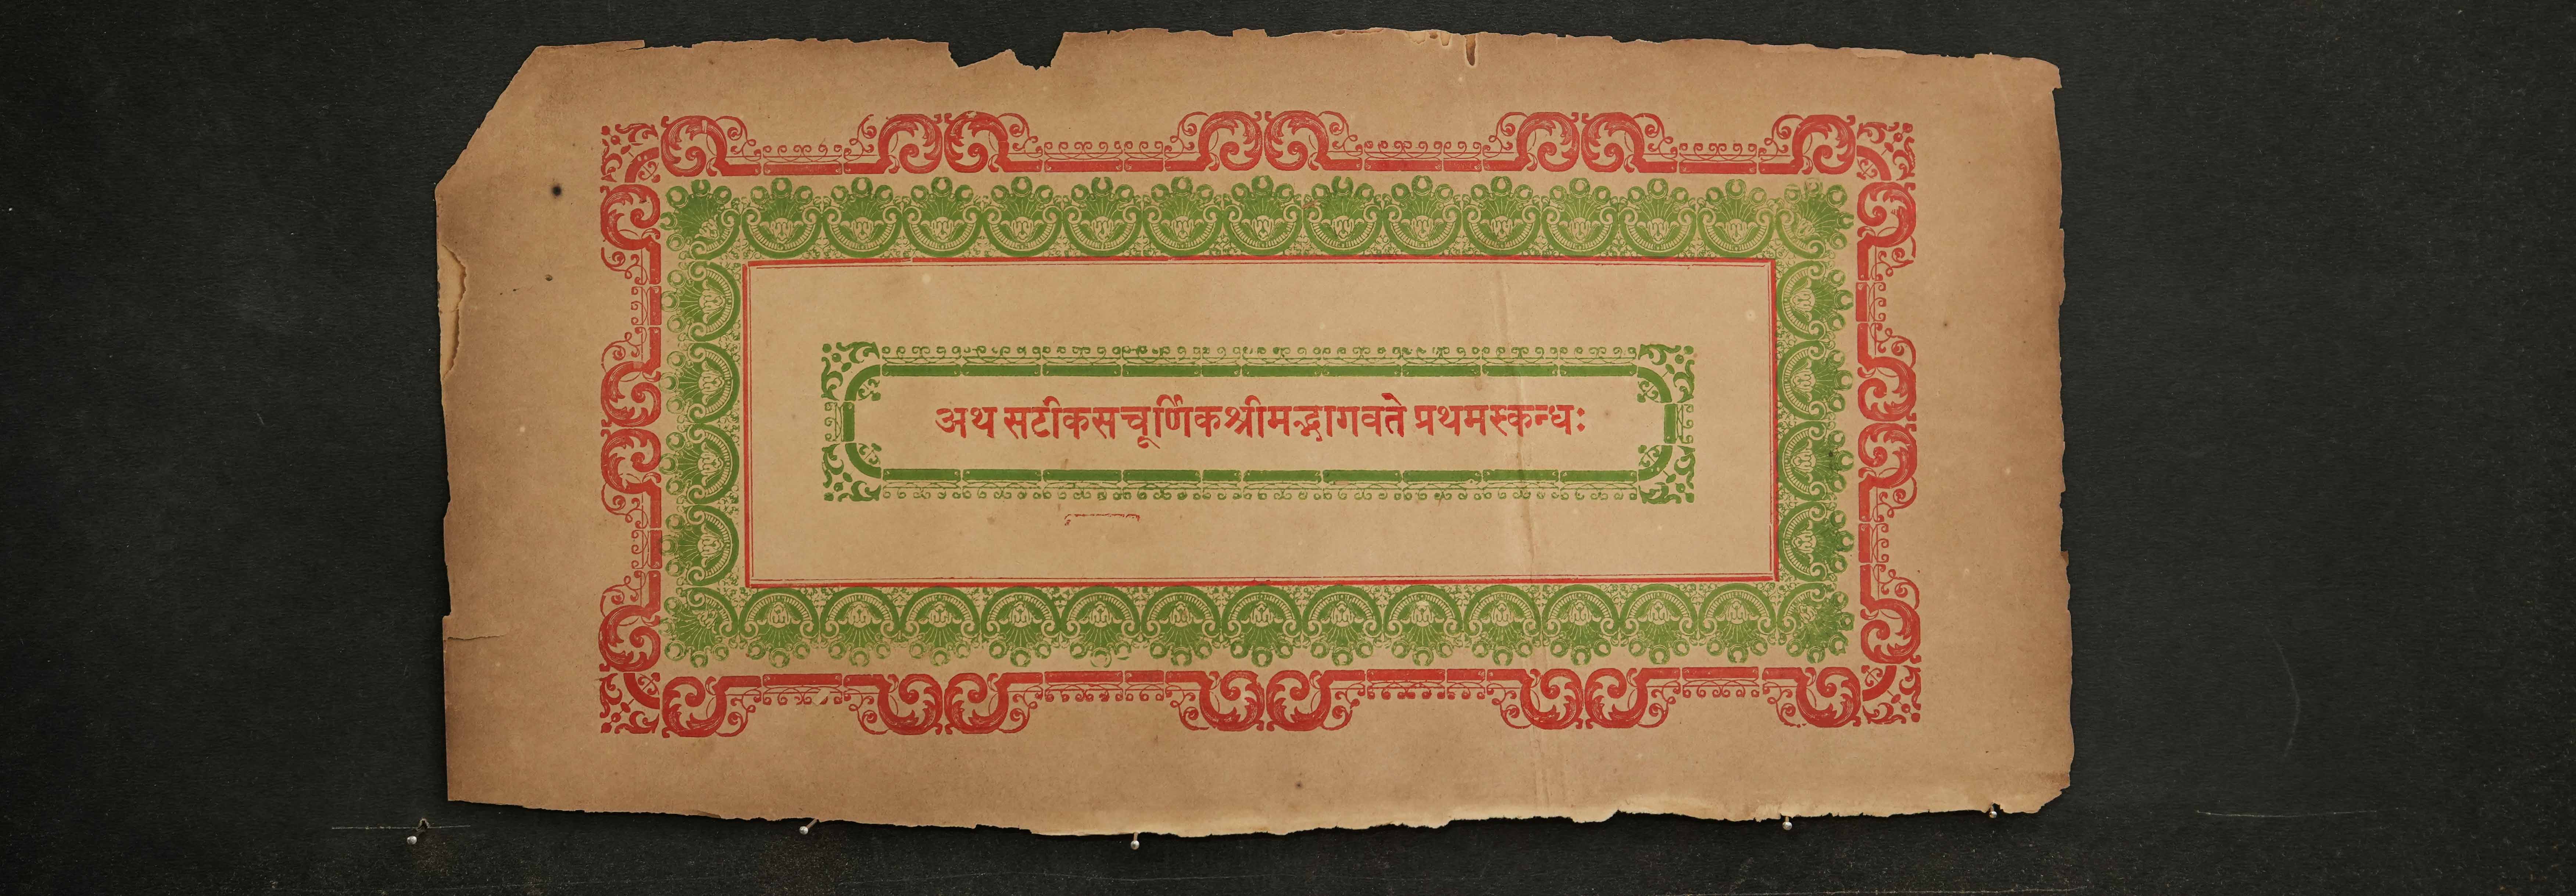 अथ सटीकसचूर्णिकश्रीमद्भागवते प्रथमस्कन्धः